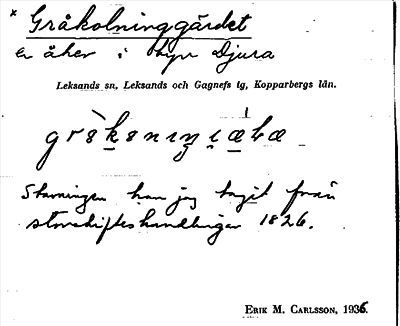 * Gråkolninggärdet
en åker i byn Djura
Leksands sn, Leksands och Gagnefs tg, Kopparbergs län.
Stavningen har jag tagit från
storskifteshandlingar 1826.
ERIK M. CARLSSON, 1936.